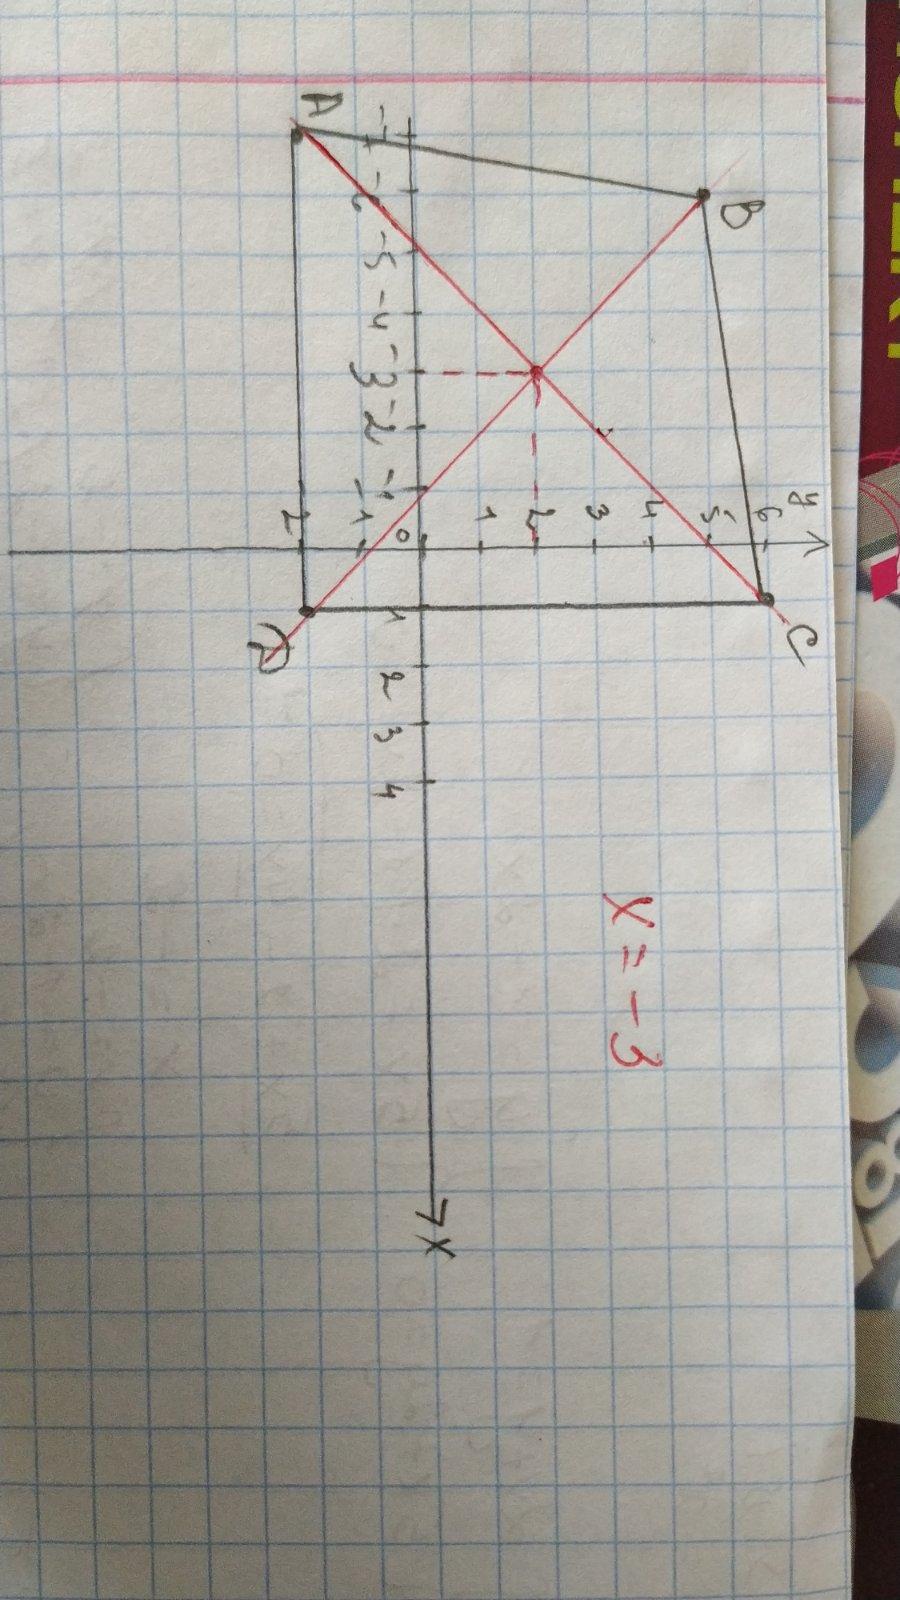 y
6
5
4
3
2
1
0
-1
-7 -6 -5 -4 -3 -2 -1
1 2 3 4
X
A
B
C
D
X = -3